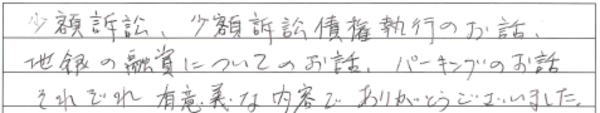 少額訴訟、少額訴訟債権執行のお話、
地銀の融資についてのお話、パーキングのお話
それぞれ有意義な内容でありがとうございました。